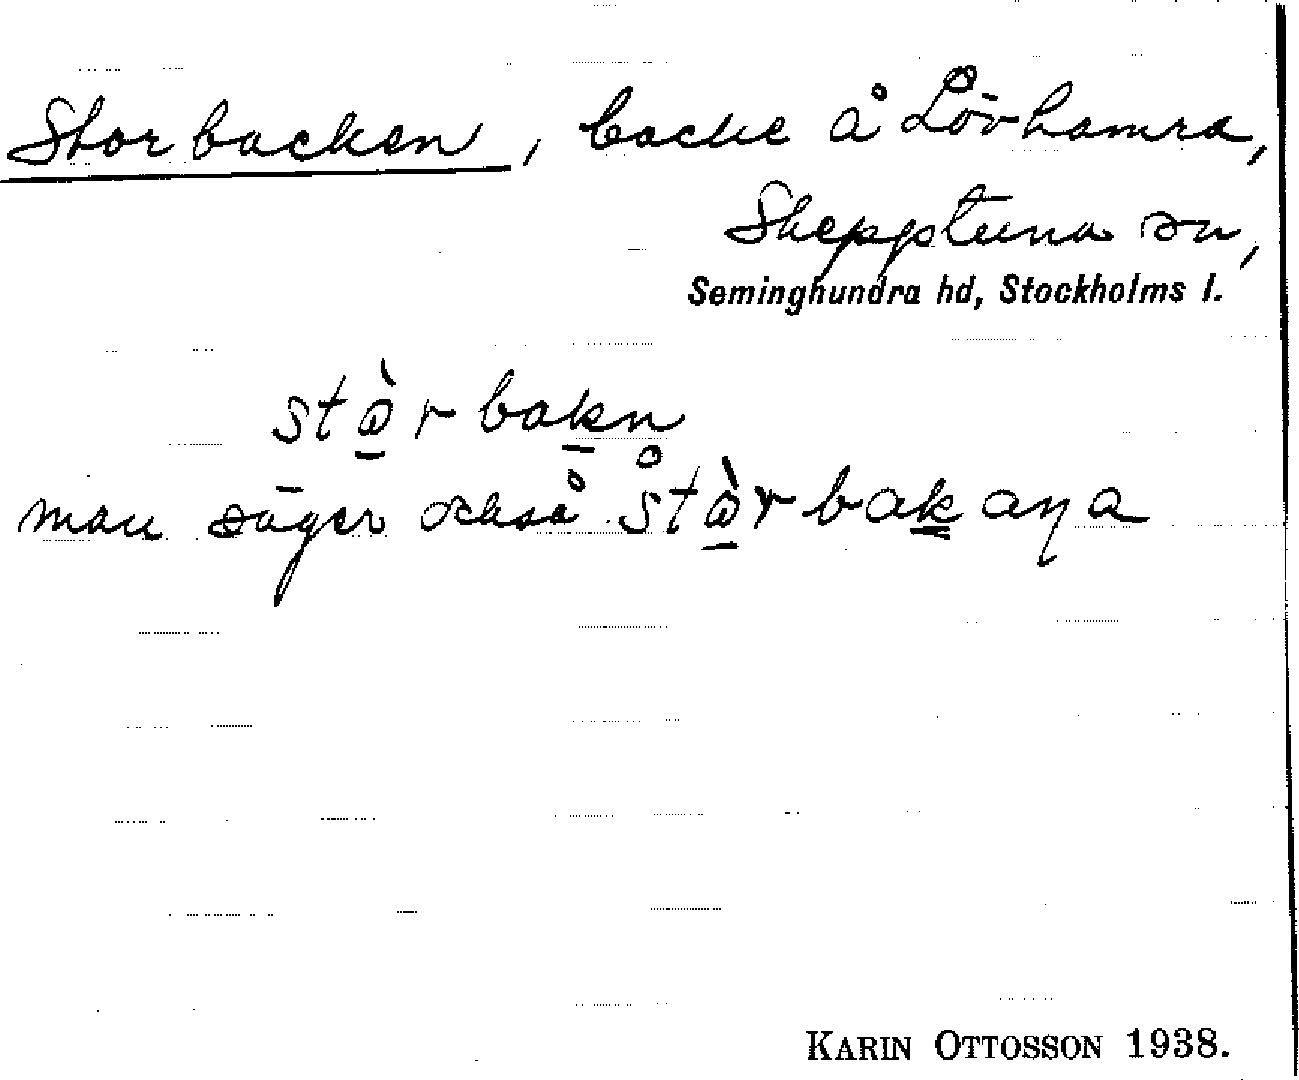 Storbacken, backe å Lövhamra,
Skepptuna sn,
Seminghundra hd, Stockholms l.
stɷ̀r bakn
man säger också stɷ̀r bakaŋa
KARIN OTTOSSON 1938.